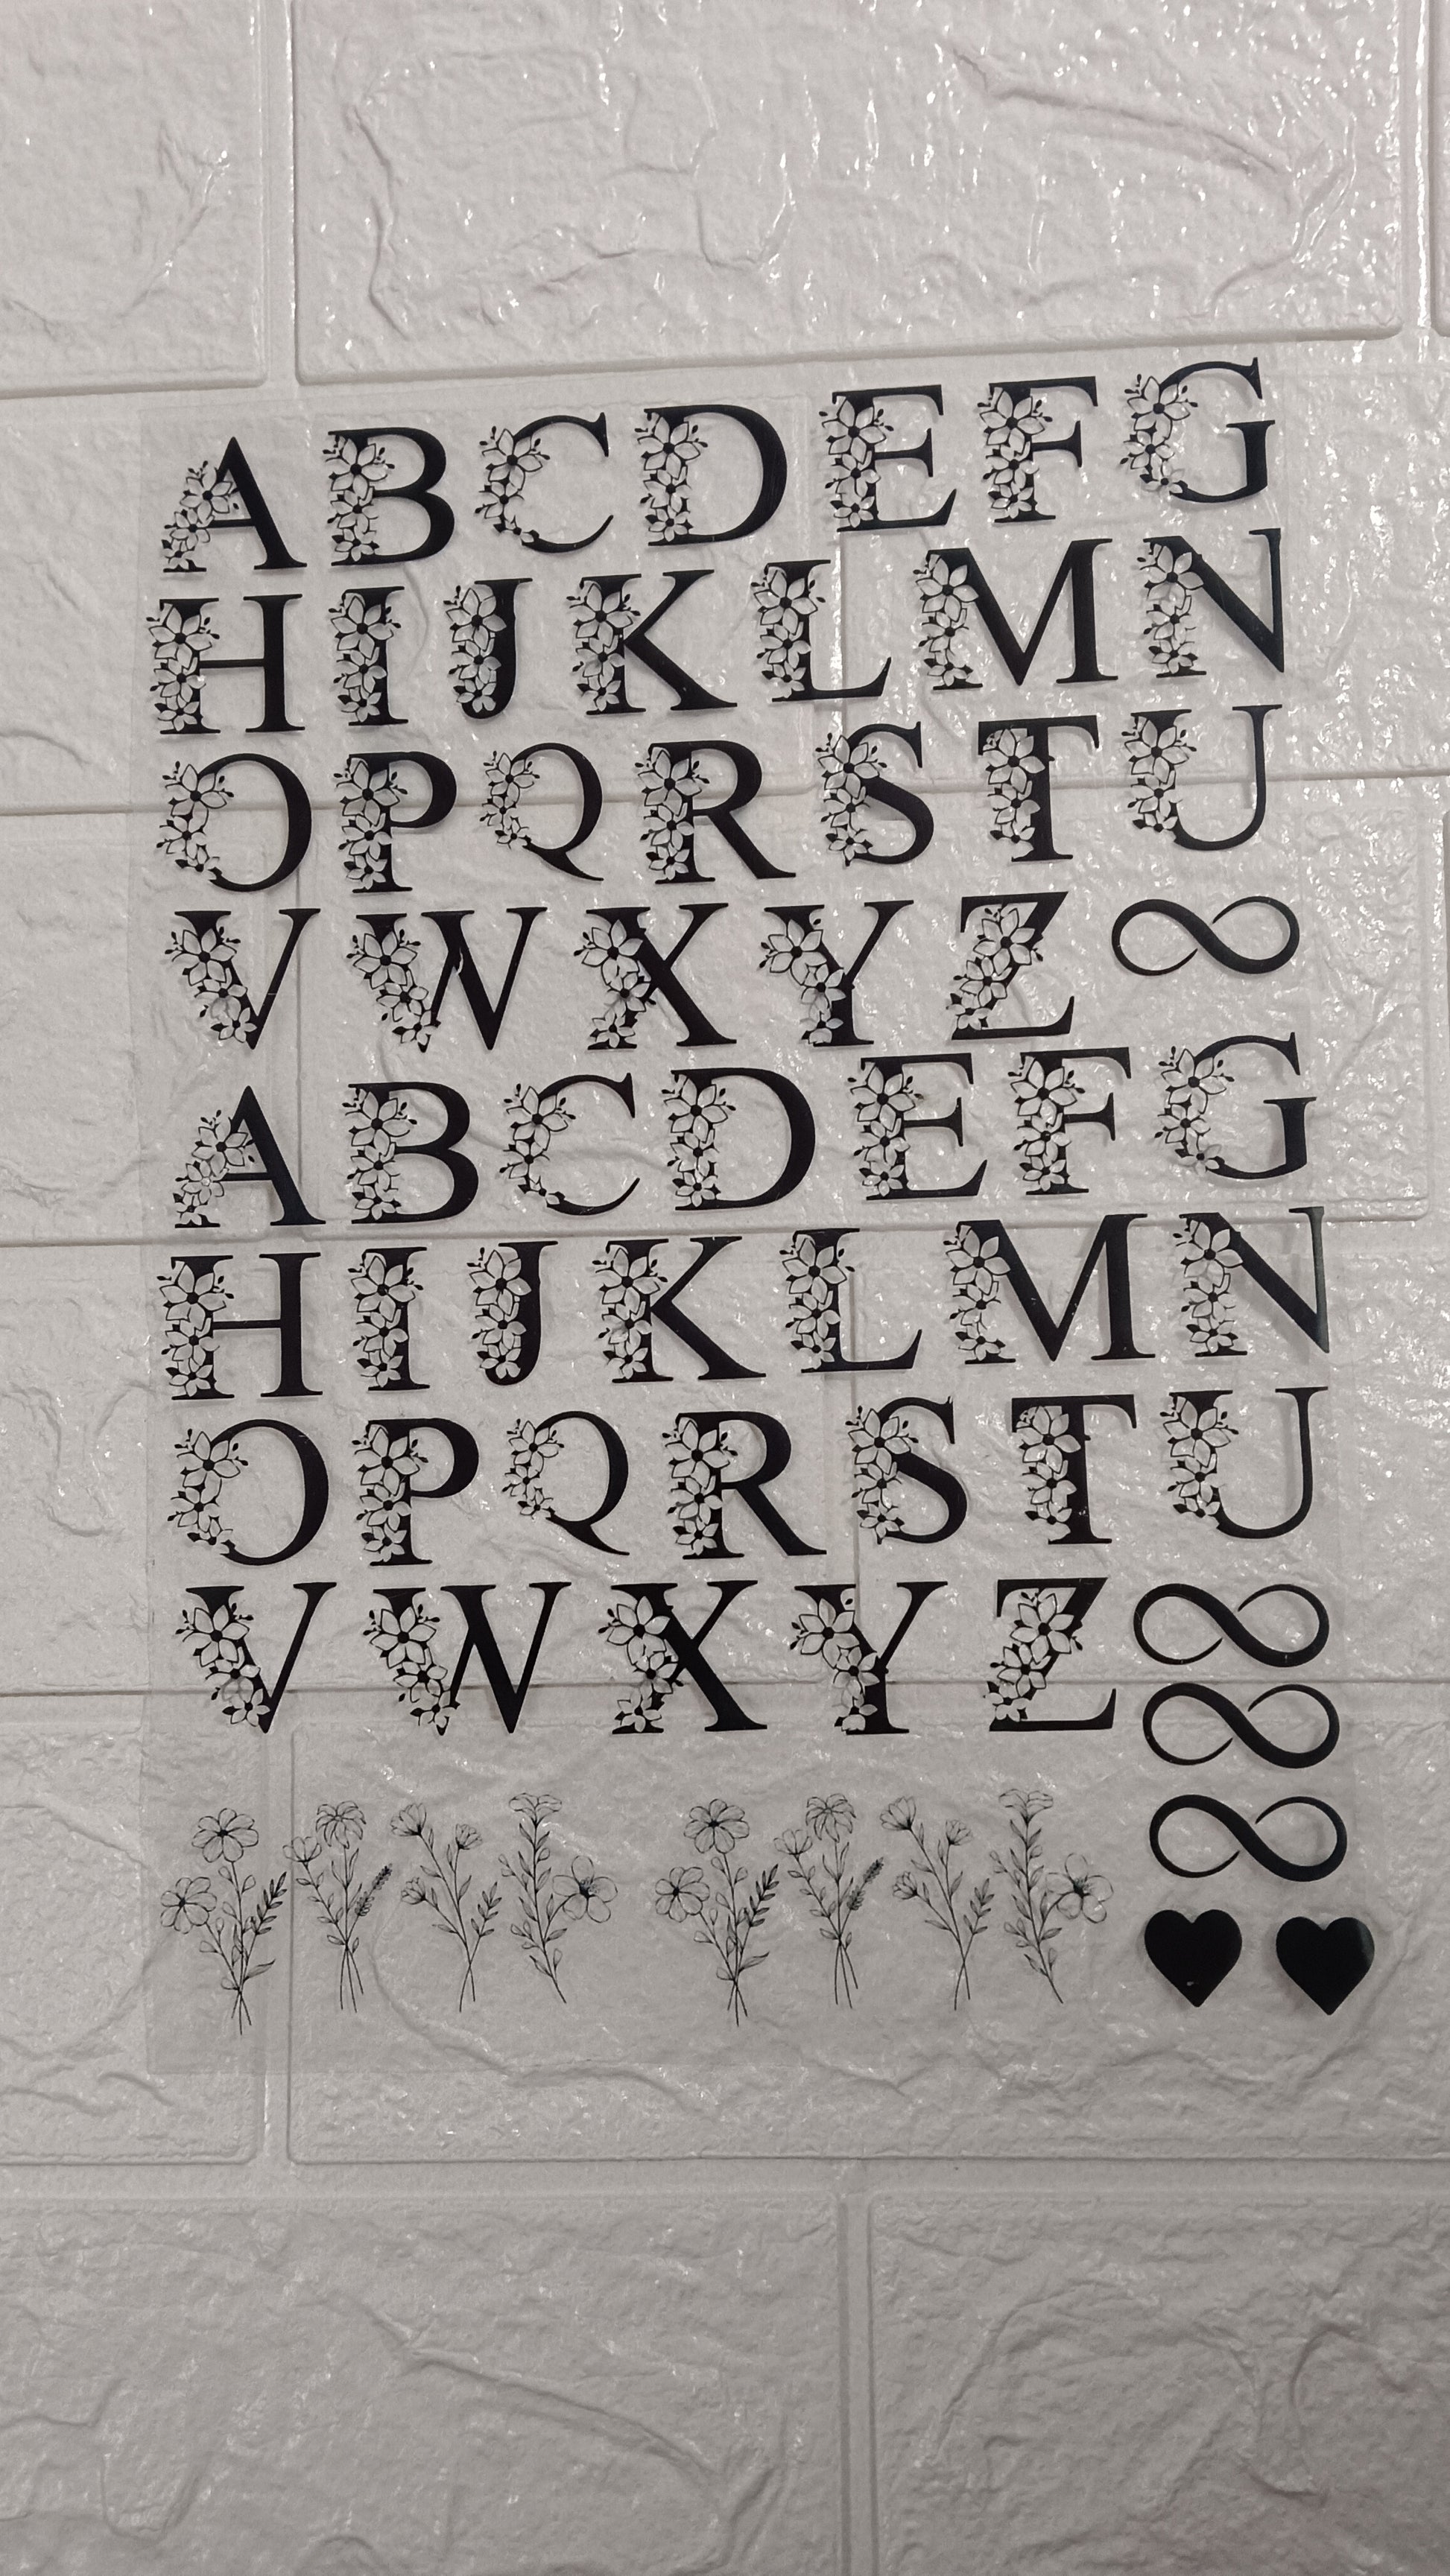 A B C D E F G
H I J K L M N
O P Q R S T U
V W X Y Z ∞
A B C D E F G
H I J K L M N
O P Q R S T U
V W X Y Z ∞
∞
∞